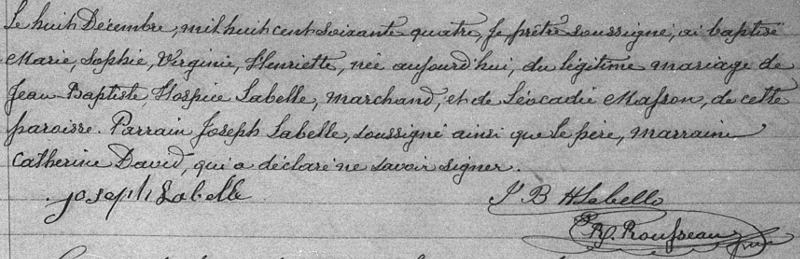 Le huit Décembre, mil huit cent soixante quatre, Je prêtre soussigné, ai baptisé
Marie, Sophie, Virginie, Henriette, née aujourd'hui, du légitime mariage de
Jean Baptiste, Hospice Labelle, marchand, et de Léocadie Masson, de cette
paroisse. Parrain Joseph Labelle, soussigné ainsi que le père, marraine
Catherine David, qui a déclaré ne savoir signer.
Joseph Labelle
J B H Labelle
Rousseau ptre